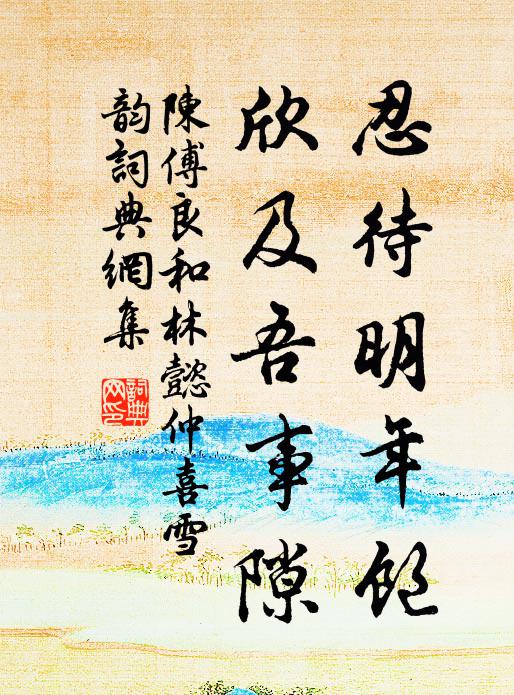 忍待明年飽
欣及吾事隙
陳傅良和林懿仲喜雪
韵詞典網集
詞典
网印